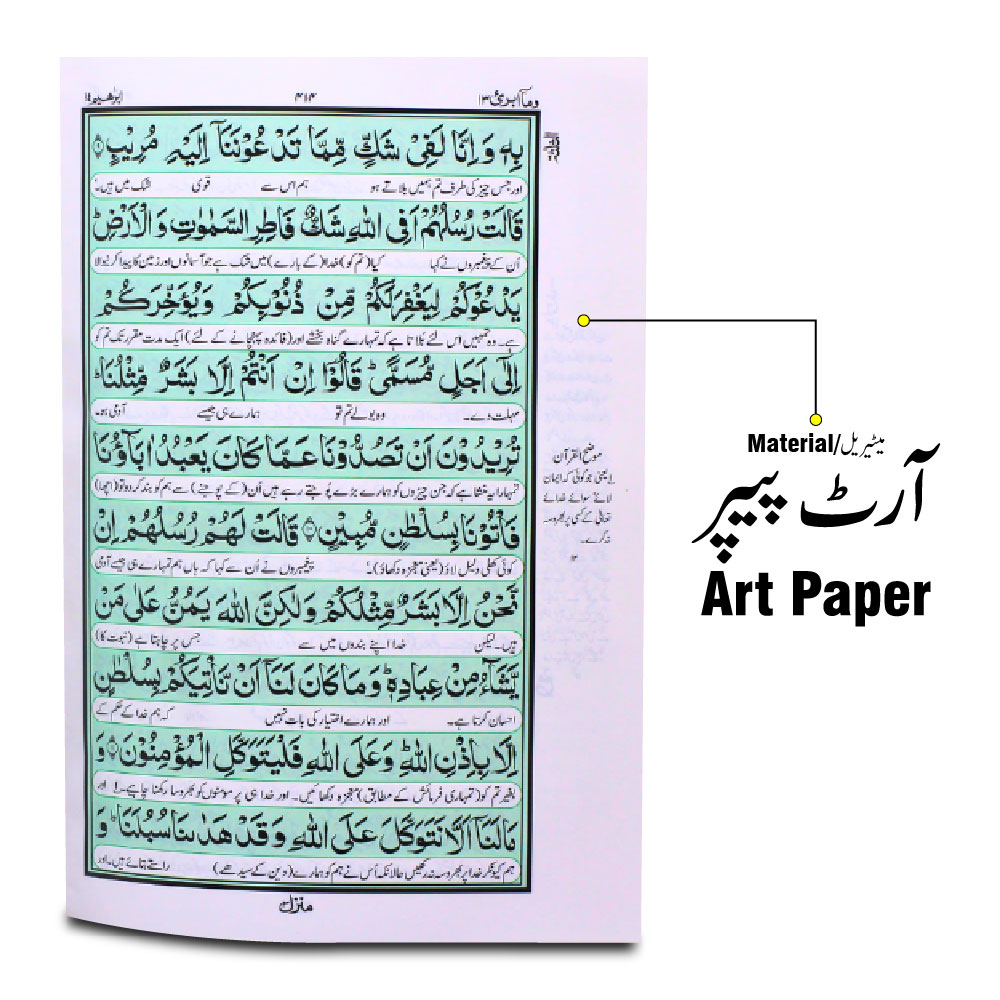 وما ابرئ ۱۳
۴۱۴
ابرٰهيم ۱۴
بِهٖ وَ اِنَّا لَفِیْ شَكٍّ مِّمَّا تَدْعُوْنَنَاۤ اِلَیْهِ مُرِیْبٍ
اور جس چیز کی طرف تم ہمیں بلاتے ہو ہم اس سے قوی شک میں ہیں۔
قَالَتْ رُسُلُهُمْ اَفِی اللّٰهِ شَكٌّ فَاطِرِ السَّمٰوٰتِ وَ الْاَرْضِ
اُن کے پیغمبروں نے کہا کیا (تم کو) خدا (کے بارے) میں شک ہے جو آسمانوں اور زمین کا پیدا کرنیوالا
یَدْعُوْكُمْ لِیَغْفِرَ لَكُمْ مِّنْ ذُنُوْبِكُمْ وَیُؤَخِّرَكُمْ
ہے۔ وہ تمہیں اس لئے بُلاتا ہے کہ تمہارے گناہ بخشے اور (فائدہ پہنچانے کے لئے) ایک مدت مقرر تک تم کو
اِلٰۤی اَجَلٍ مُّسَمًّی قَالُوْۤا اِنْ اَنْتُمْ اِلَّا بَشَرٌ مِّثْلُنَا
مہلت دے۔ وہ بولے تم تو ہمارے ہی جیسے آدمی ہو۔
تُرِیْدُوْنَ اَنْ تَصُدُّوْنَا عَمَّا كَانَ یَعْبُدُ اٰبَآؤُنَا
تمہارا یہ منشا ہے کہ جن چیزوں کو ہمارے بڑے پوجتے رہے ہیں اُن (کے پوجنے) سے ہم کو بند کر دو تو (اچھا)
فَاْتُوْنَا بِسُلْطٰنٍ مُّبِیْنٍ قَالَتْ لَهُمْ رُسُلُهُمْ اِنْ
کوئی کھلی دلیل لاؤ (یعنی معجزہ دکھاؤ)۔ پیغمبروں نے اُن سے کہا کہ ہاں ہم تمہارے ہی جیسے آدمی
نَّحْنُ اِلَّا بَشَرٌ مِّثْلُكُمْ وَلٰكِنَّ اللّٰهَ یَمُنُّ عَلٰی مَنْ
ہیں۔ لیکن خدا اپنے بندوں میں سے جس پر چاہتا ہے (نبوت کا)
یَّشَآءُ مِنْ عِبَادِهٖ وَمَا كَانَ لَنَاۤ اَنْ نَّاْتِیَكُمْ بِسُلْطٰنٍ
احسان کرتا ہے۔ اور ہمارے اختیار کی بات نہیں کہ ہم خدا کے حکم کے
اِلَّا بِاِذْنِ اللّٰهِ وَعَلَی اللّٰهِ فَلْیَتَوَكَّلِ الْمُؤْمِنُوْنَ وَ
بغیر تم کو (تمہاری فرمائش کے مطابق) معجزہ دکھائیں۔ اور خدا ہی پر مومنوں کو بھروسا رکھنا چاہیے۔ اور
مَا لَنَاۤ اَلَّا نَتَوَكَّلَ عَلَی اللّٰهِ وَ قَدْ هَدٰىنَا سُبُلَنَا وَ
ہم کیونکر خدا پر بھروسہ نہ رکھیں حالانکہ اُس نے ہم کو ہمارے (دین کے سیدھے) راستے بتائے ہیں۔ اور
منزل
موضح القرآن
یعنی جو کوئی کہ ایمان
لائے سوائے خدائے
تعالیٰ کے کسی پر بھروسہ
نہ کرے۔
۱۲
Material/میٹیریل
آرٹ پیپر
Art Paper